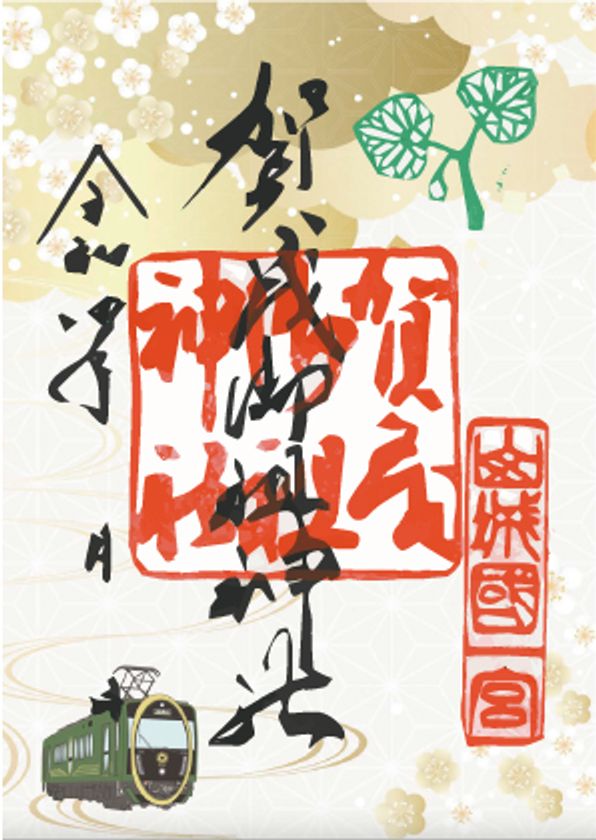 山城國一宮
賀茂御祖神社
賀茂
御祖
神社
令和四年 月